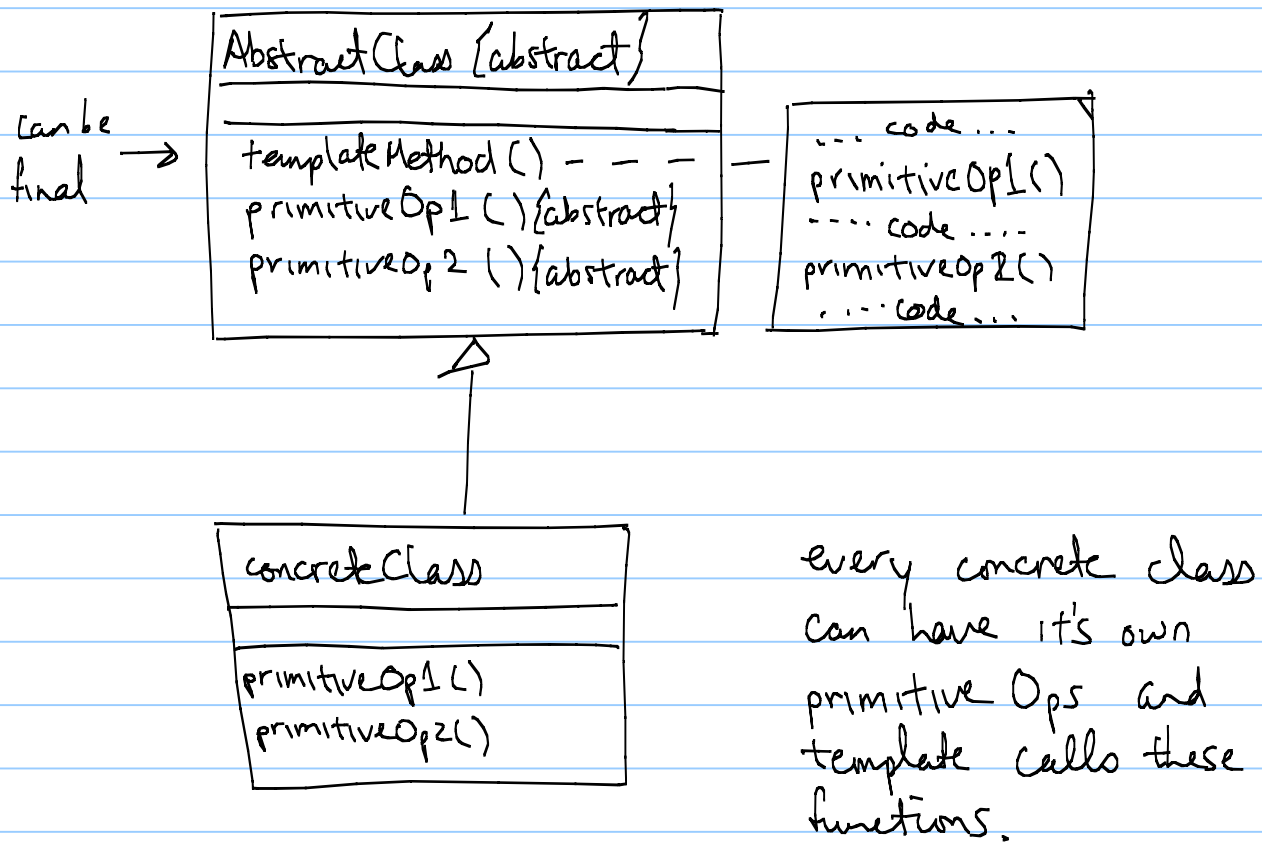 AbstractClass {abstract}
can be
final →
templateMethod() - - - -
primitiveOp1(){abstract}
primitiveOp2(){abstract}
.... code ...
primitiveOp1()
.... code ....
primitiveOp2()
.... code ...
concreteClass
primitiveOp1()
primitiveOp2()
every concrete class
can have it's own
primitive Ops and
template calls these
functions.